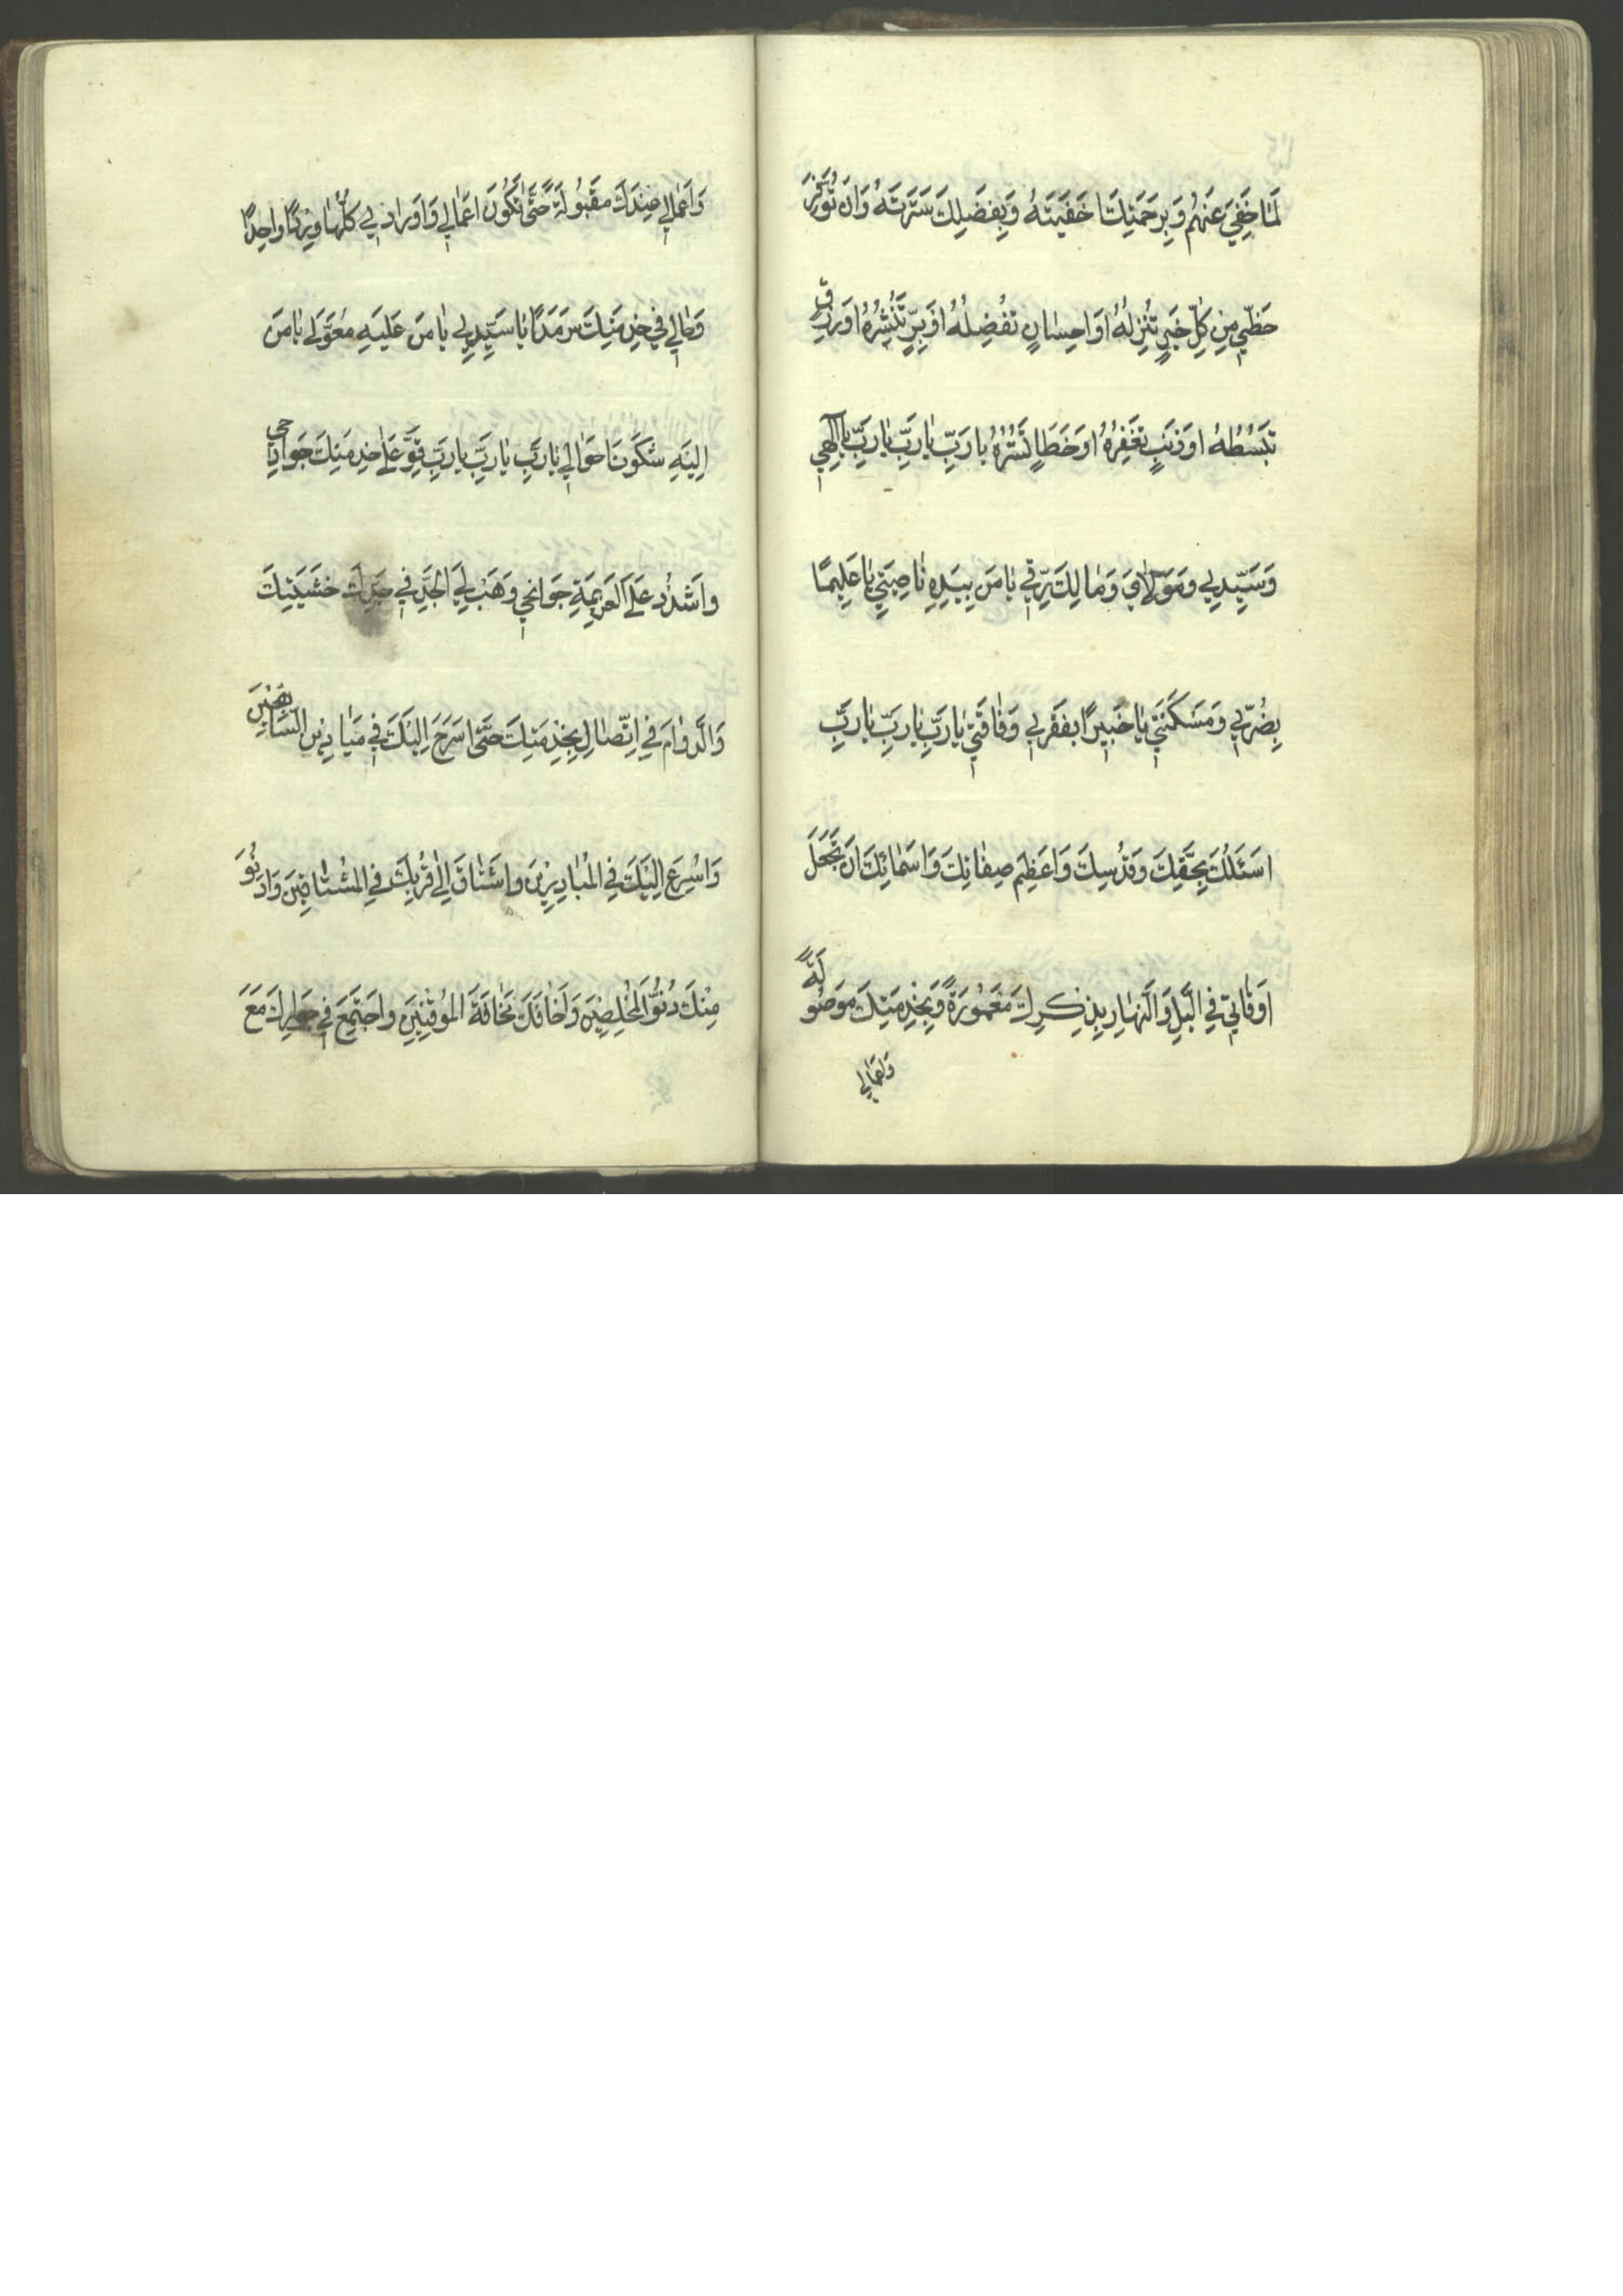 لِمَا خَفِيَ عَنْهُمْ وَبِرَحْمَتِكَ اَخْفَيْتَهُ وَبِفَضْلِكَ سَتَرْتَهُ وَاَنْ تُوَفِّرَ
حَظّي مِنْ كُلِّ خَيْرٍ تُنْزِلُهُ اَوْ اِحْسَانٍ تُفْضِلُهُ اَوْ بِرٍّ تَنْشُرُهُ اَوْ رِزْقٍ
تَبْسُطُهُ اَوْ ذَنْبٍ تَغْفِرُهُ اَوْ خَطَاءٍ تَسْتُرُهُ يَا رَبِّ يَا رَبِّ يَا رَبِّ يَا اِلٰهِي
وَسَيِّدِي وَمَوْلَايَ وَمَالِكَ رِقِّي يَا مَنْ بِيَدِهِ نَاصِيَتِي يَا عَلِيمًا
بِضُرِّي وَمَسْكَنَتِي يَا خَبِيرًا بِفَقْرِي وَفَاقَتِي يَا رَبِّ يَا رَبِّ يَا رَبِّ
اَسْئَلُكَ بِحَقِّكَ وَقُدْسِكَ وَاَعْظَمِ صِفَاتِكَ وَاَسْمَائِكَ اَنْ تَجْعَلَ
اَوْقَاتِي فِي اللَّيْلِ وَالنَّهَارِ بِذِكْرِكَ مَعْمُورَةً وَبِخِدْمَتِكَ مَوْصُولَةً
وَاَعْمَالِي
وَاَعْمَالِي عِنْدَكَ مَقْبُولَةً حَتّٰى تَكُونَ اَعْمَالِي وَاَوْرَادِي كُلُّهَا وِرْدًا وَاحِدًا
وَحَالِي فِي خِدْمَتِكَ سَرْمَدًا يَا سَيِّدِي يَا مَنْ عَلَيْهِ مُعَوَّلِي يَا مَنْ
اِلَيْهِ شَكَوْتُ اَحْوَالِي يَا رَبِّ يَا رَبِّ يَا رَبِّ قَوِّ عَلٰى خِدْمَتِكَ جَوَارِحِي
وَاشْدُدْ عَلَى الْعَزِيمَةِ جَوَانِحِي وَهَبْ لِيَ الْجِدَّ فِي خَشْيَتِكَ
وَالدَّوَامَ فِي اِتِّصَالِ بِخِدْمَتِكَ حَتّٰى اَسْرَحَ اِلَيْكَ فِي مَيَادِينِ السَّابِقِينَ
وَاُسْرِعَ اِلَيْكَ فِي الْمُبَادِرِينَ وَاَشْتَاقَ اِلٰى قُرْبِكَ فِي الْمُشْتَاقِينَ وَاَدْنُوَ
مِنْكَ دُنُوَّ الْمُخْلِصِينَ وَاَخَافَكَ مَخَافَةَ الْمُوقِنِينَ وَاَجْتَمِعَ فِي جِوَارِكَ مَعَ